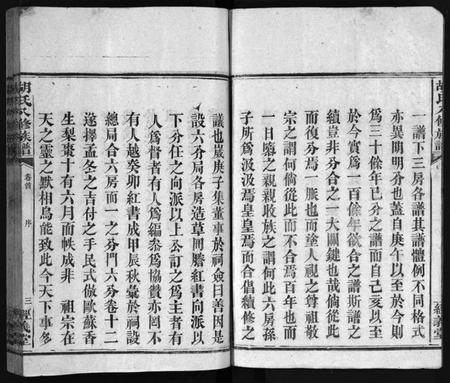 胡氏八修族譜
一譜下三房各譜其譜體例不同格式
亦異明明分也蓋自庚午以至於今則
為三十餘年已分之譜而自己亥以至
於今實為一百餘年欲合之譜斯譜之
續豈非分合之一大關鍵也哉倘從此
而復分焉一脈也而塗人視之尊祖敬
宗之謂何倘從此而不合焉百年也而
一日隳之親親收族之謂何此六房孫
子所為汲汲焉皇皇焉而合倡續修之
經義堂
議也歲庚子集董事於祠僉曰善因是
設六分局各房造草冊謄紅書向派以
下分任之向派以上公訂之為主者有
人為督者有人為編叅為協贊亦罔不
有人越癸卯紅書成甲辰秋彙於祠設
總局合六房而一之分門六分卷十二
遂擇孟冬之吉付之手民式倣歐蘇香
生梨棗十有六月而帙成非 祖宗在
天之靈之默相烏能致此今天下事多
胡氏八修族譜
卷首
序
三
經義堂